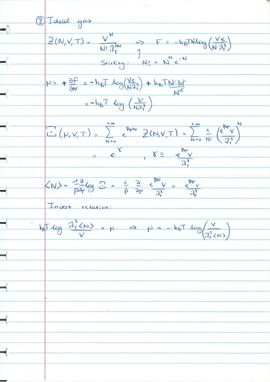 ② Ideal gas
Z(N,V,T) = V^N / (N! λ_t^{3N}) ⇒ F = -k_BTN log(Ve / Nλ_t^3)
Stirling: N! ≈ N^N e^{-N}
μ = +∂F/∂N = -k_BT log(Ve / Nλ_t^3) + k_BT N·N / N^2
= -k_BT log(V / Nλ_t^3)
Ξ(μ,V,T) = Σ_{N=0}^{+∞} e^{βμN} Z(N,V,T) = Σ_{N=0}^{+∞} 1/N! (e^{βμ}V / λ_t^3)^N
= e^γ , γ = e^{βμ}V / λ_t^3
<N> = 1/β ∂/∂μ log Ξ = 1/β ∂/∂μ e^{βμ}V / λ_t^3 = e^{βμ}V / λ_t^3
Invert relation:
k_BT log λ_t^3<N> / V = μ ⇒ μ = -k_BT log(V / λ_t^3<N>)